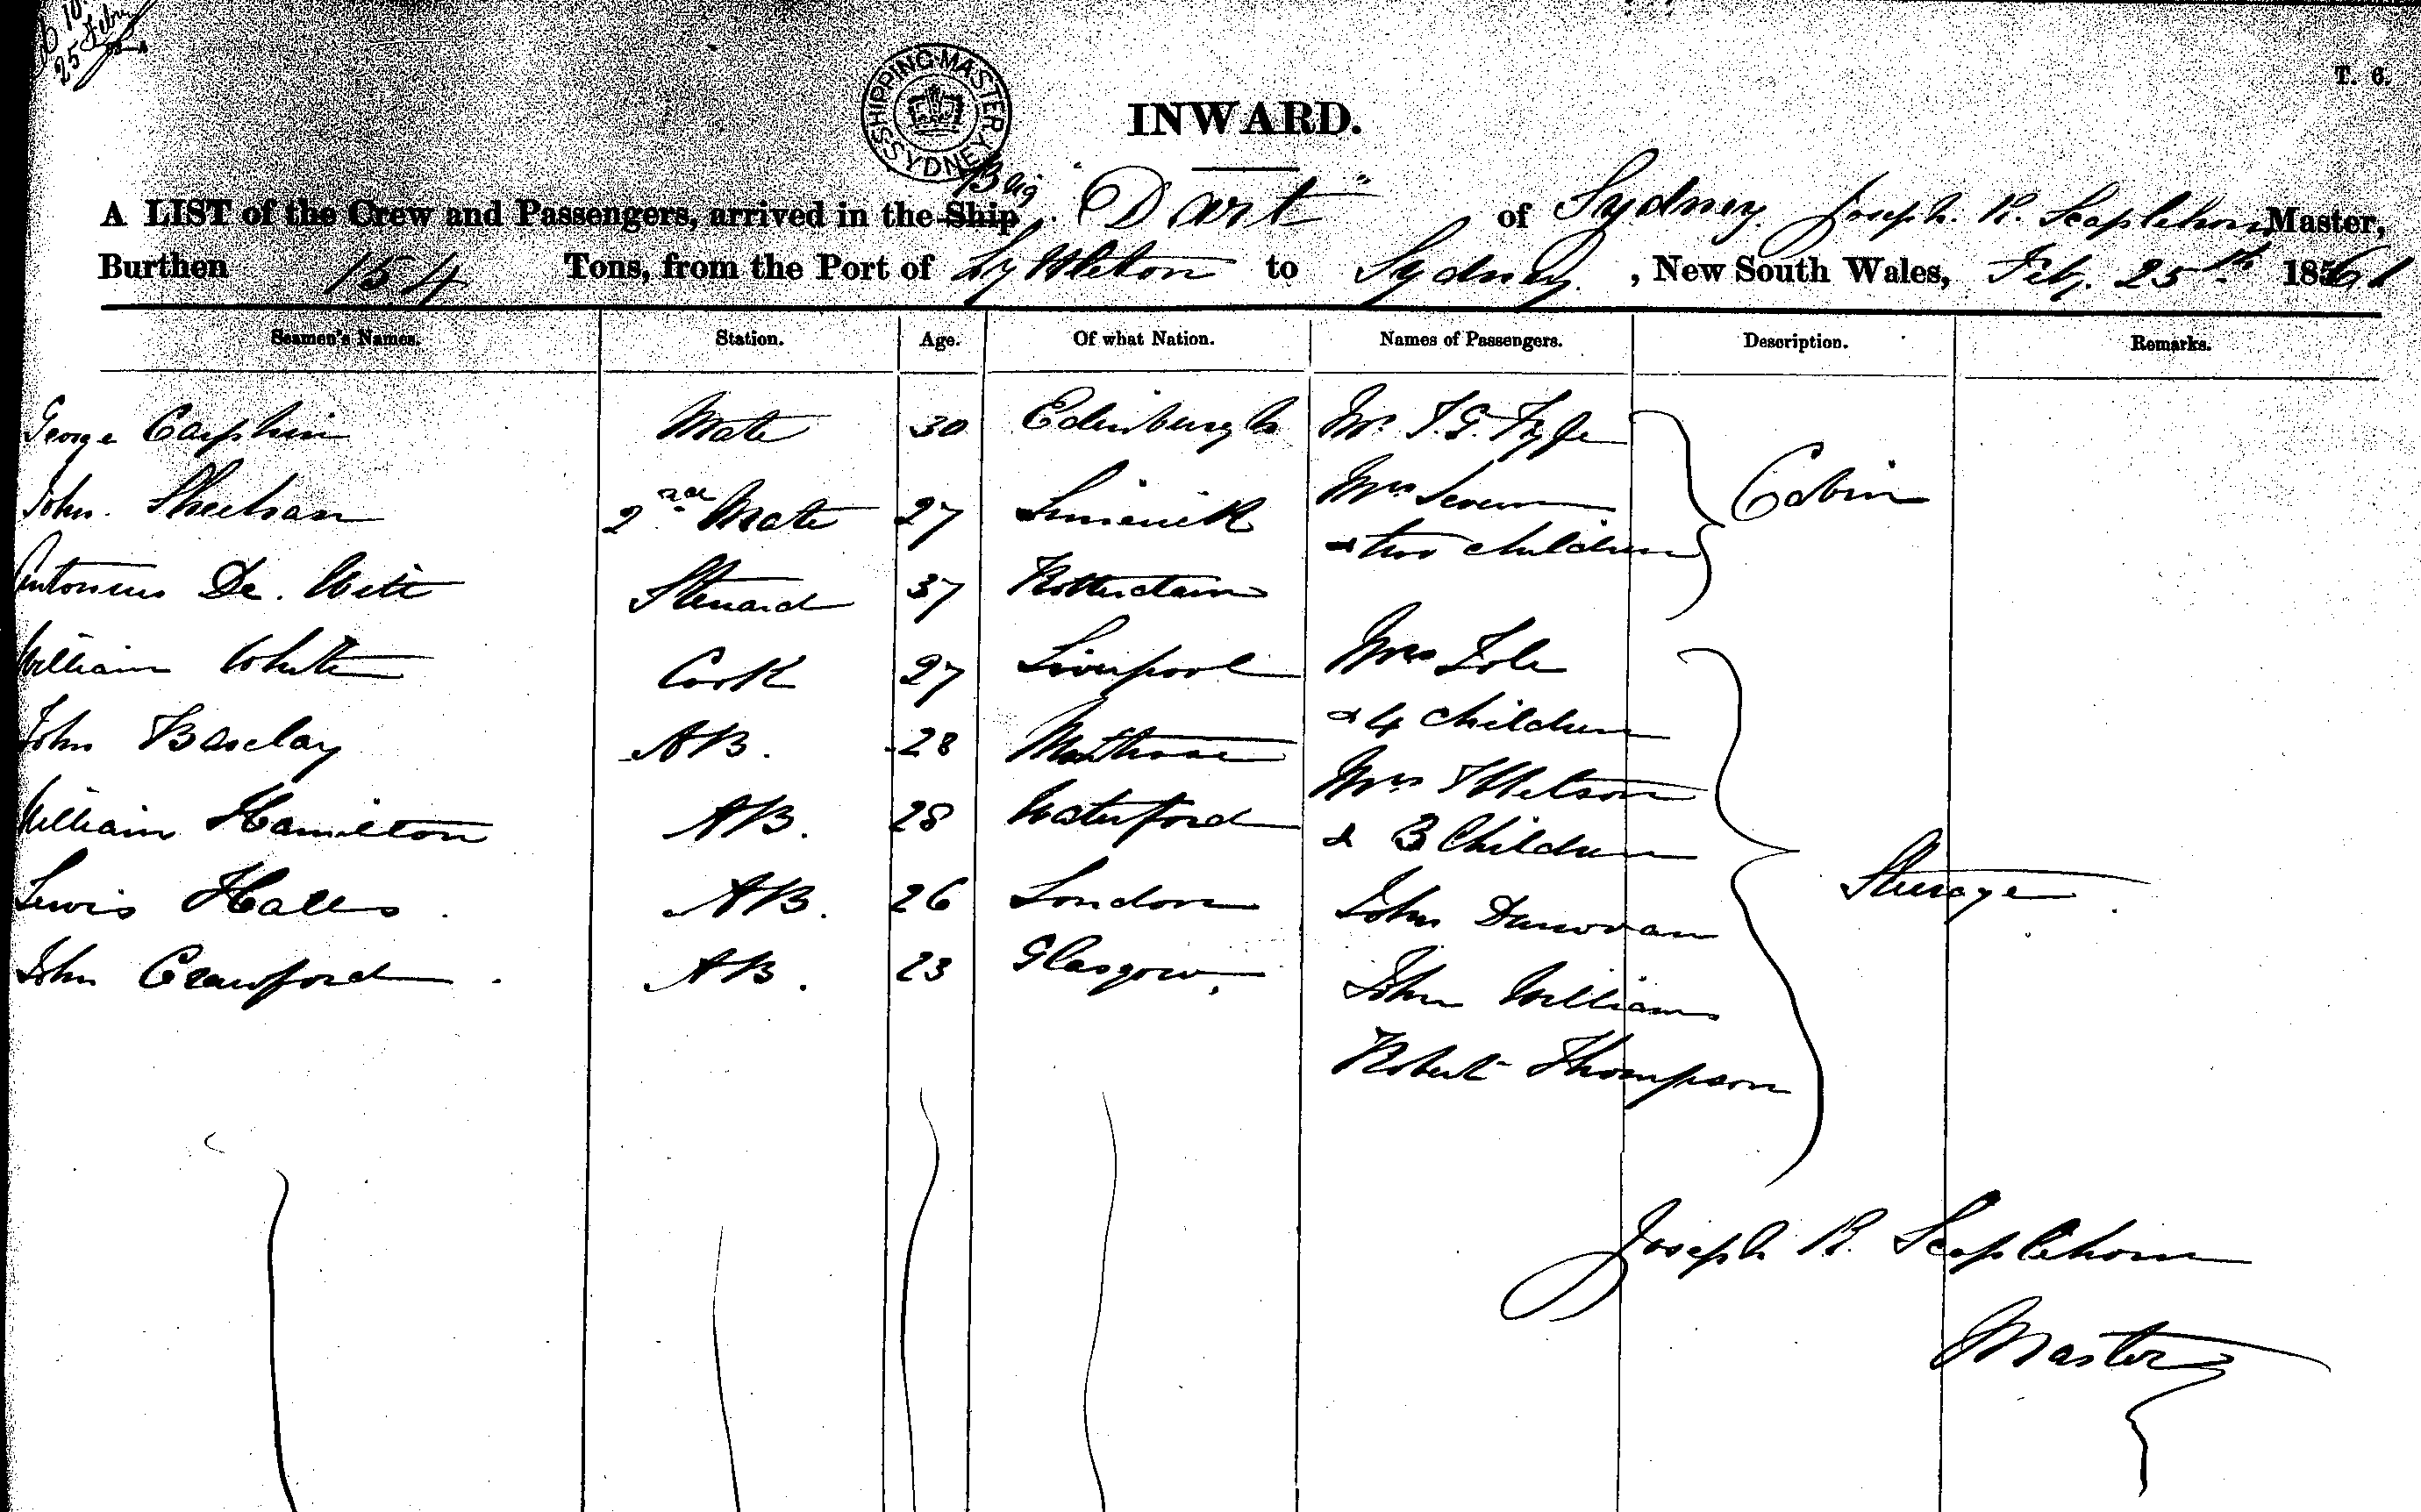 25 Febry
T. 6.
SHIPPING MASTER SYDNEY
INWARD.
A LIST of the Crew and Passengers, arrived in the Ship Brig "Dart" of Sydney. Joseph. R. Scaplehorn Master,
Burthen 154 Tons, from the Port of Lyttleton to Sydney. , New South Wales, Feby. 25th. 1861
Seamen's Names. Station. Age. Of what Nation. Names of Passengers. Description. Remarks.
George Carphin Mate 30 Edinburgh Mr. Fyfe
John. Sheehan 2nd Mate 27 Limerick Mrs Cabin
& two children
Antonius De. Witt Steward 37 Rotterdam
William White Cook 27 Liverpool Mrs
& 4 children
John Barclay AB. 28 Montrose Mrs
William Hamilton AB. 28 Waterford & 3 Children
Lewis Halls. AB. 26 London John Dunovan Steerage.
John Crawford. AB. 23 Glasgow. John Williams
Robert Thompson
Joseph R. Scaplehorn
Master